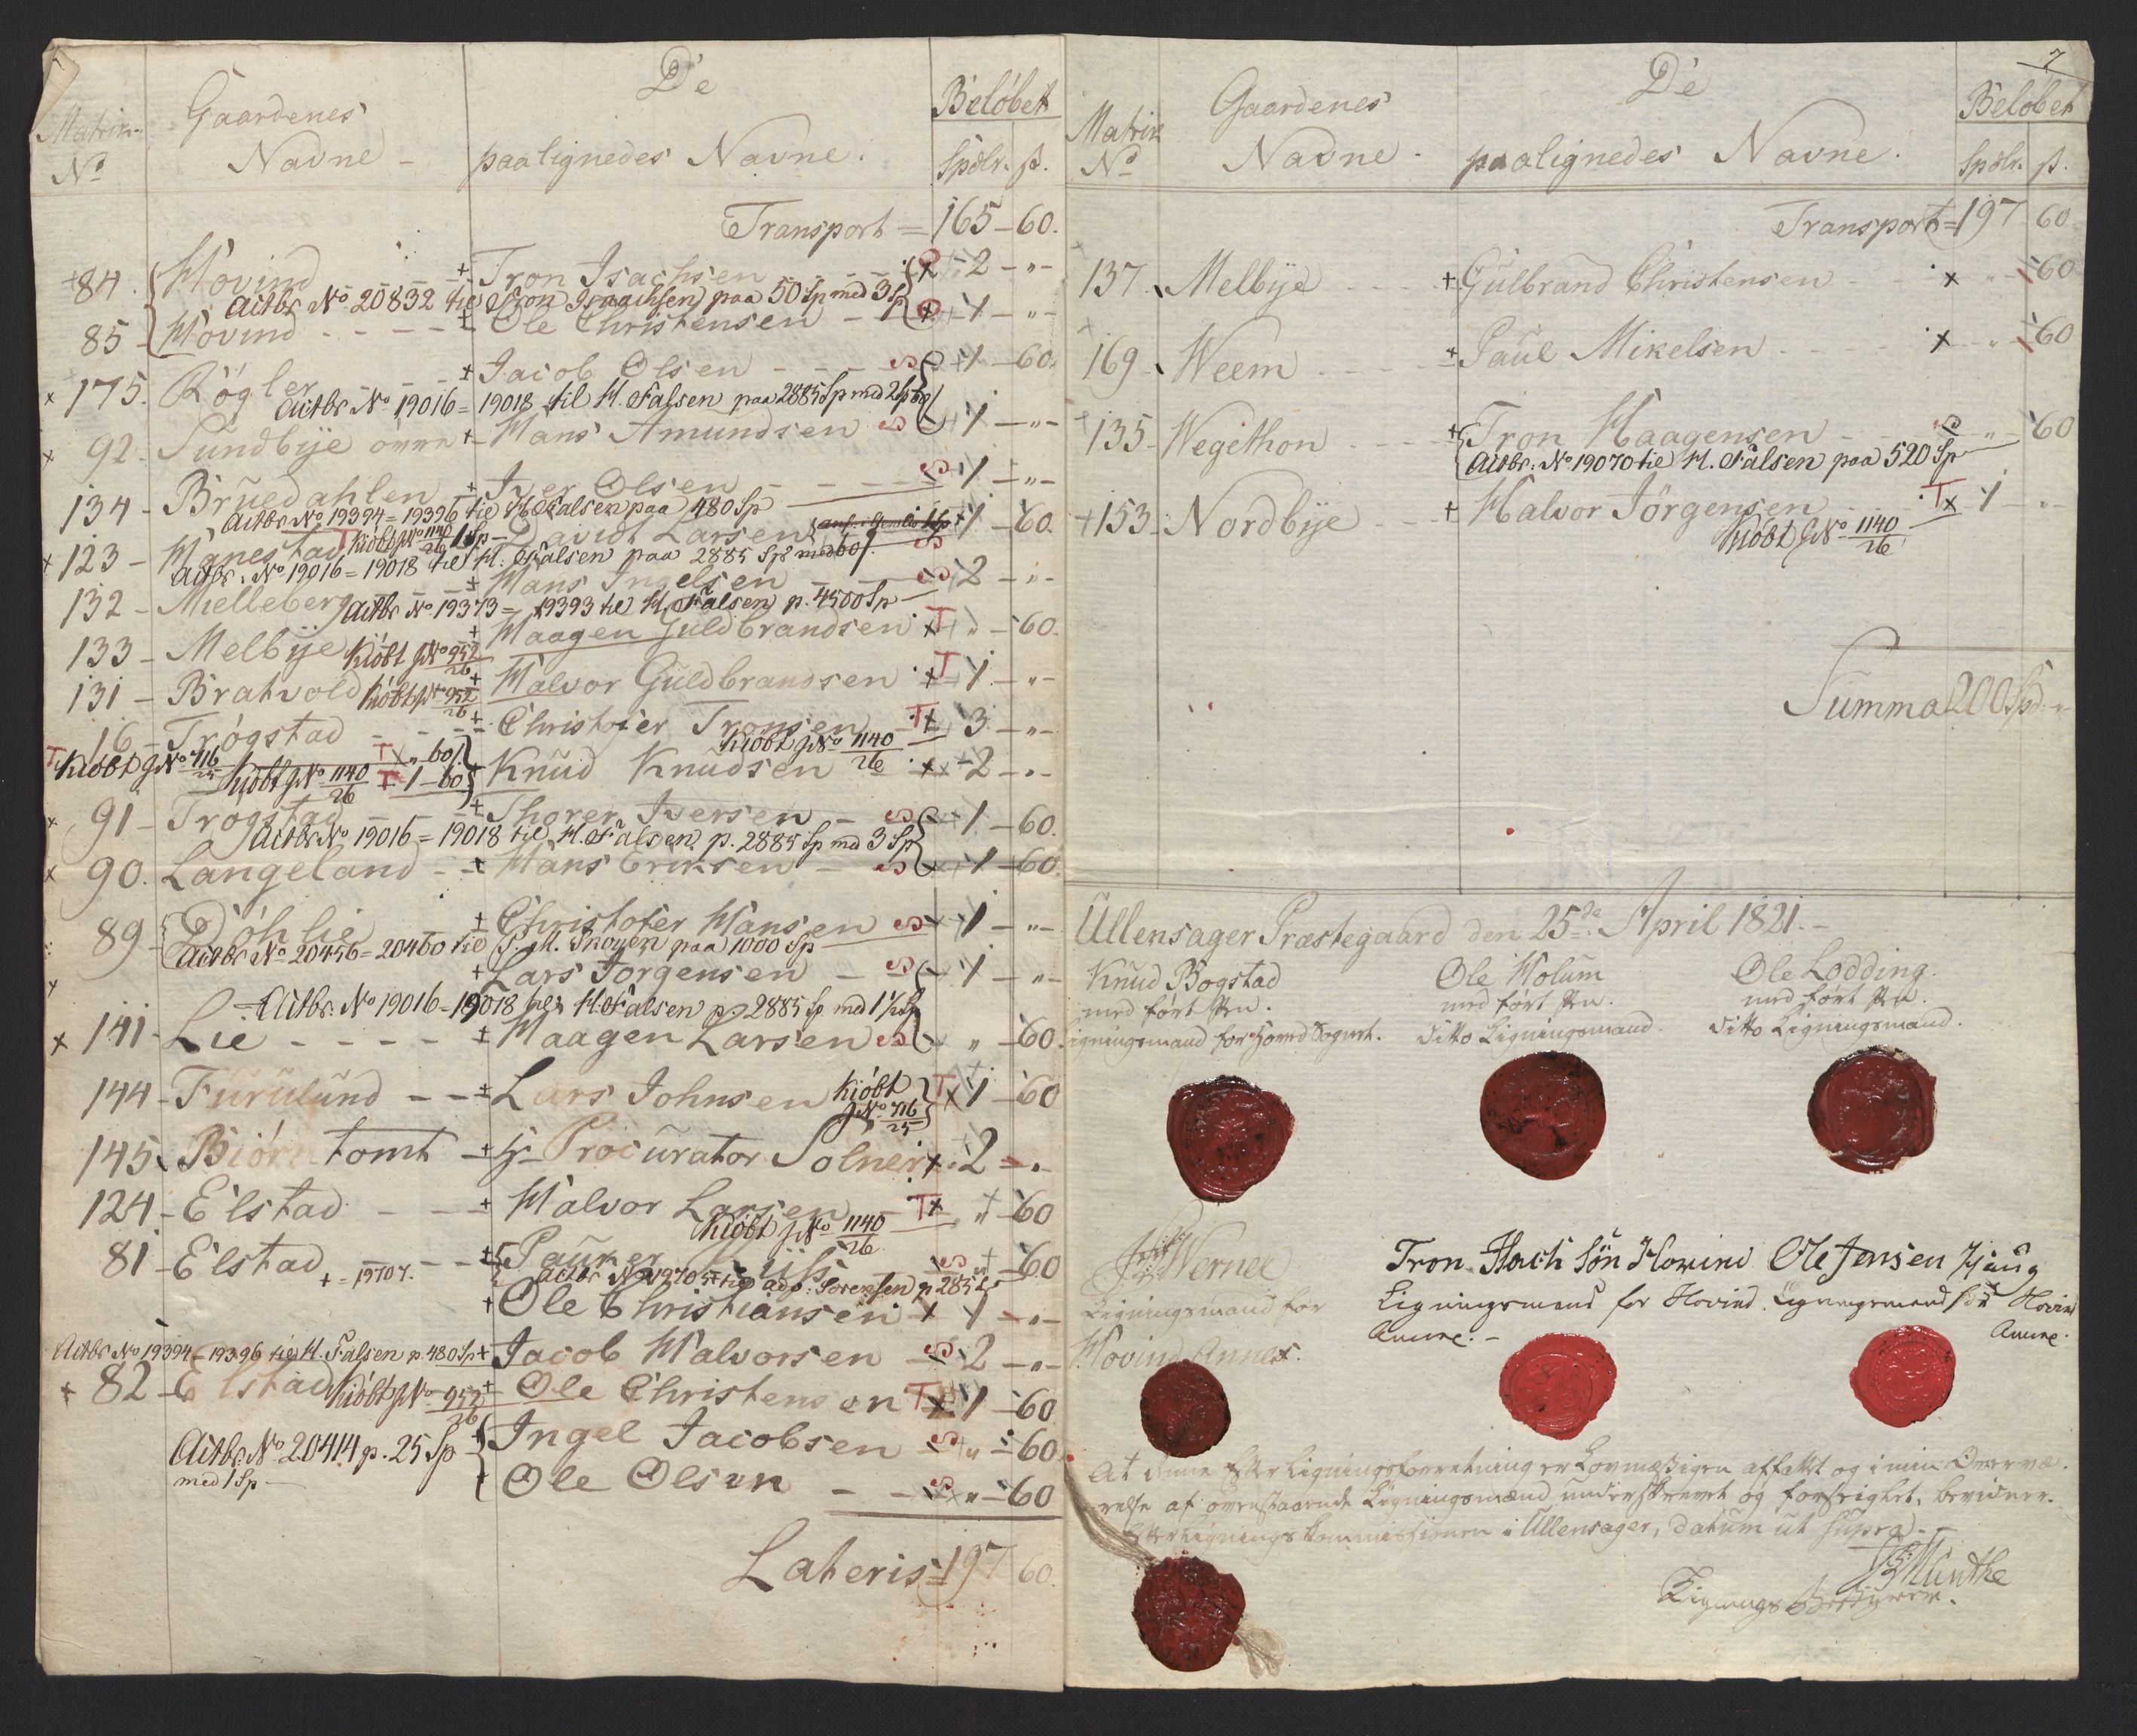 Matrik. Gaardenes De Beløbet
No Navne - paalignedes Navne. Spdlr. ß.
Transport = 165 - 60.
84. Hovind + Tron Isachsen 2 - " -
Actbr. No 20832 til Tron Isaachsen paa 50 Sp med 3 Sp
85 - Hovind + Ole Christensen 1 - " -
x 175. Røgler + Jacob Olsen S 1 - 60.
Actbr No 19016 = 19018 til H. Falsen paa 2885 Sp med 2 Sp 60
x 92 - Sundbye øvre + Hans Amundsen S 1 - " -
134 - Bruedahlen + Iver Olsen S 1 - " -
Actbr No 19394 = 19396 til H. Falsen paa 480 Sp
x 123 - Hanestad Kiøbt No 1140/26 1 Sp - David Larsen 1 - 60.
Actbr. No 19016 = 19018 til H. Falsen paa 2885 Sp med 60 ß. S
132 - Mielleberg + Hans Ingelsen S 2 - " -
Actbr No 19373 = 19393 til H. Falsen p. 4500 Sp
133 - Melbye Kiøbt No 952/26 + Haagen Guldbrandsen x T " - 60.
131 - Bratvold Kiøbt No 952/26 + Halvor Guldbrandsen x T 1 - " -
16 - Trøgstad + Christofer Tronsen T x 3 - " -
Kiøbt No 1140/26
T Kiøbt No 716/25 T " 60 ß.
Kiøbt No 1140/26 T 1 - 60 + Knud Knudsen x 2 - " -
x 91 - Trøgstad + Thorer Iversen - S 1 - 60.
Actbr No 19016 = 19018 til H. Falsen p. 2885 Sp med 3 Sp
x 90. Langeland - + Hans Eriksen - S 1 - 60.
89 - Døhlie + Christofer Hansen S x 1 - " -
Actbr No 20456 = 20460 til P. M. Trøyen paa 1000 Sp
x + Lars Jørgensen - S 1 - " -
Actbr. No 19016 - 19018 til H. Falsen p. 2885 Sp med 1½ Sp
x 141 - Lie - - - - + Haagen Larsen S " - 60.
144 - Furulund - - + Lars Johnsen Kiøbt No 716/25 T x 1 - 60
145. Biørntomt - + Hr Procurator Solner x 2 - " -
124 - Elstad - - + Halvor Larsen - T x " - 60
Kiøbt No 1140/26
81 - Elstad S " - 60
+ = 19707.
+ Ole Christiansen x 1 - " -
Actbr No 19394 - 19396 til H. Falsen p. 480 Sp + Jacob Halvorsen - S 2 - " -
x 82 - Elstad Kiøbt No 952/26 + Ole Christensen T x 1 - 60
Actbr. No 20414 p. 25 Sp + Ingel Jacobsen S " - 60
med 1 Sp - + Ole Olsen - - S " - 60
Lateris = 197 60.
7
Matrik Gaardenes De Beløbet
No Navne - paalignedes Navne. Spdlr. ß.
Transport = 197 60
137. Melbye + Gulbrand Christensen x " - 60
169. Weem + Paul Mikelsen x " - 60
135 - Wegithon + Tron Haagensen S " - 60
Actbr. No 19070 til H. Falsen paa 520 Sp
+ 153. Nordbye + Halvor Jørgensen T x 1 - " -
Kiøbt No 1140/26
Summa 200 Spd. "
Ullensager Præstegaard den 25de April 1821. -
Knud Bogstad Ole Holum Ole Lodding.
med ført Pen. med ført Pen. med ført Pen.
Ligningsmand for Hoved Sognet. Ditto Ligningsmand. Ditto Ligningsmand.
Werner Tron Isach Søn Howind Ole Jensen
Ligningsmand for Ligningsmand for Hovind Ligningsmand for Hovind
Hovind Annex. Annex. - Annex.
At denne Efterligningsforretning er Lovmæssigen affattet og i min Overvæ-
relse af ovenstaaende Ligningsmænd underskrevet og forseiglet, bevidner.
Efterlignings Commissionen i Ullensager, datum ut supra. -
Munthe
Lignings Bestyrer.